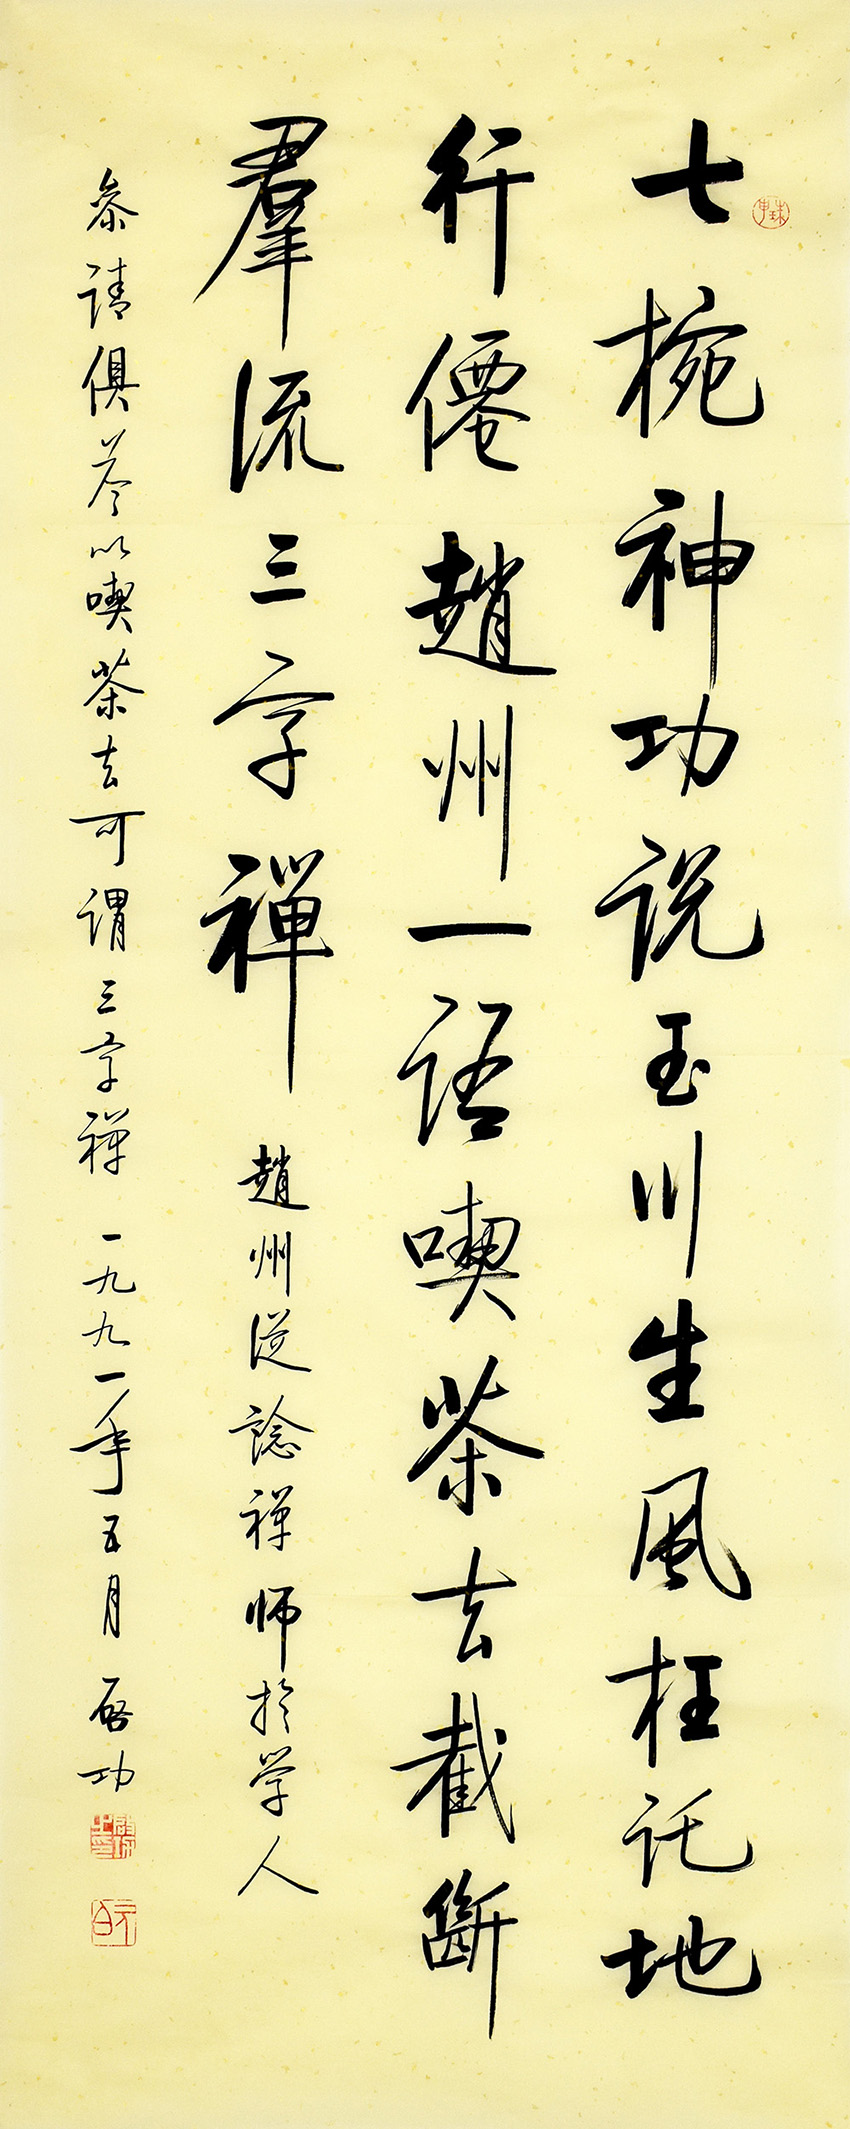 七椀神功説玉川生風枉託地
行僊趙州一語喫茶去截斷
羣流三字禪 趙州從諗禪師於学人
叅請俱荅以喫茶去可謂三字禪 一九九一年五月 啓功